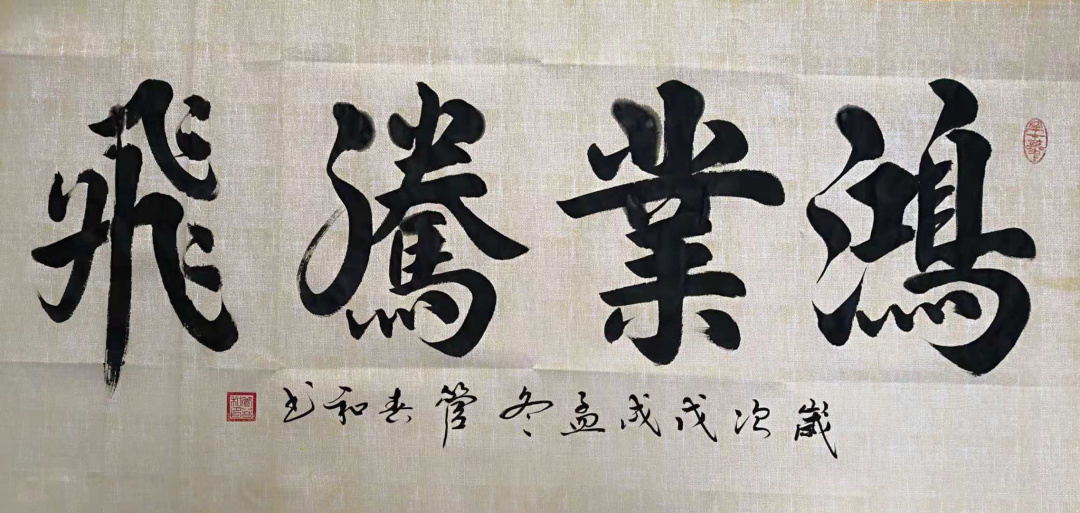 鴻業騰飛
歲次戊戌孟冬管春和书